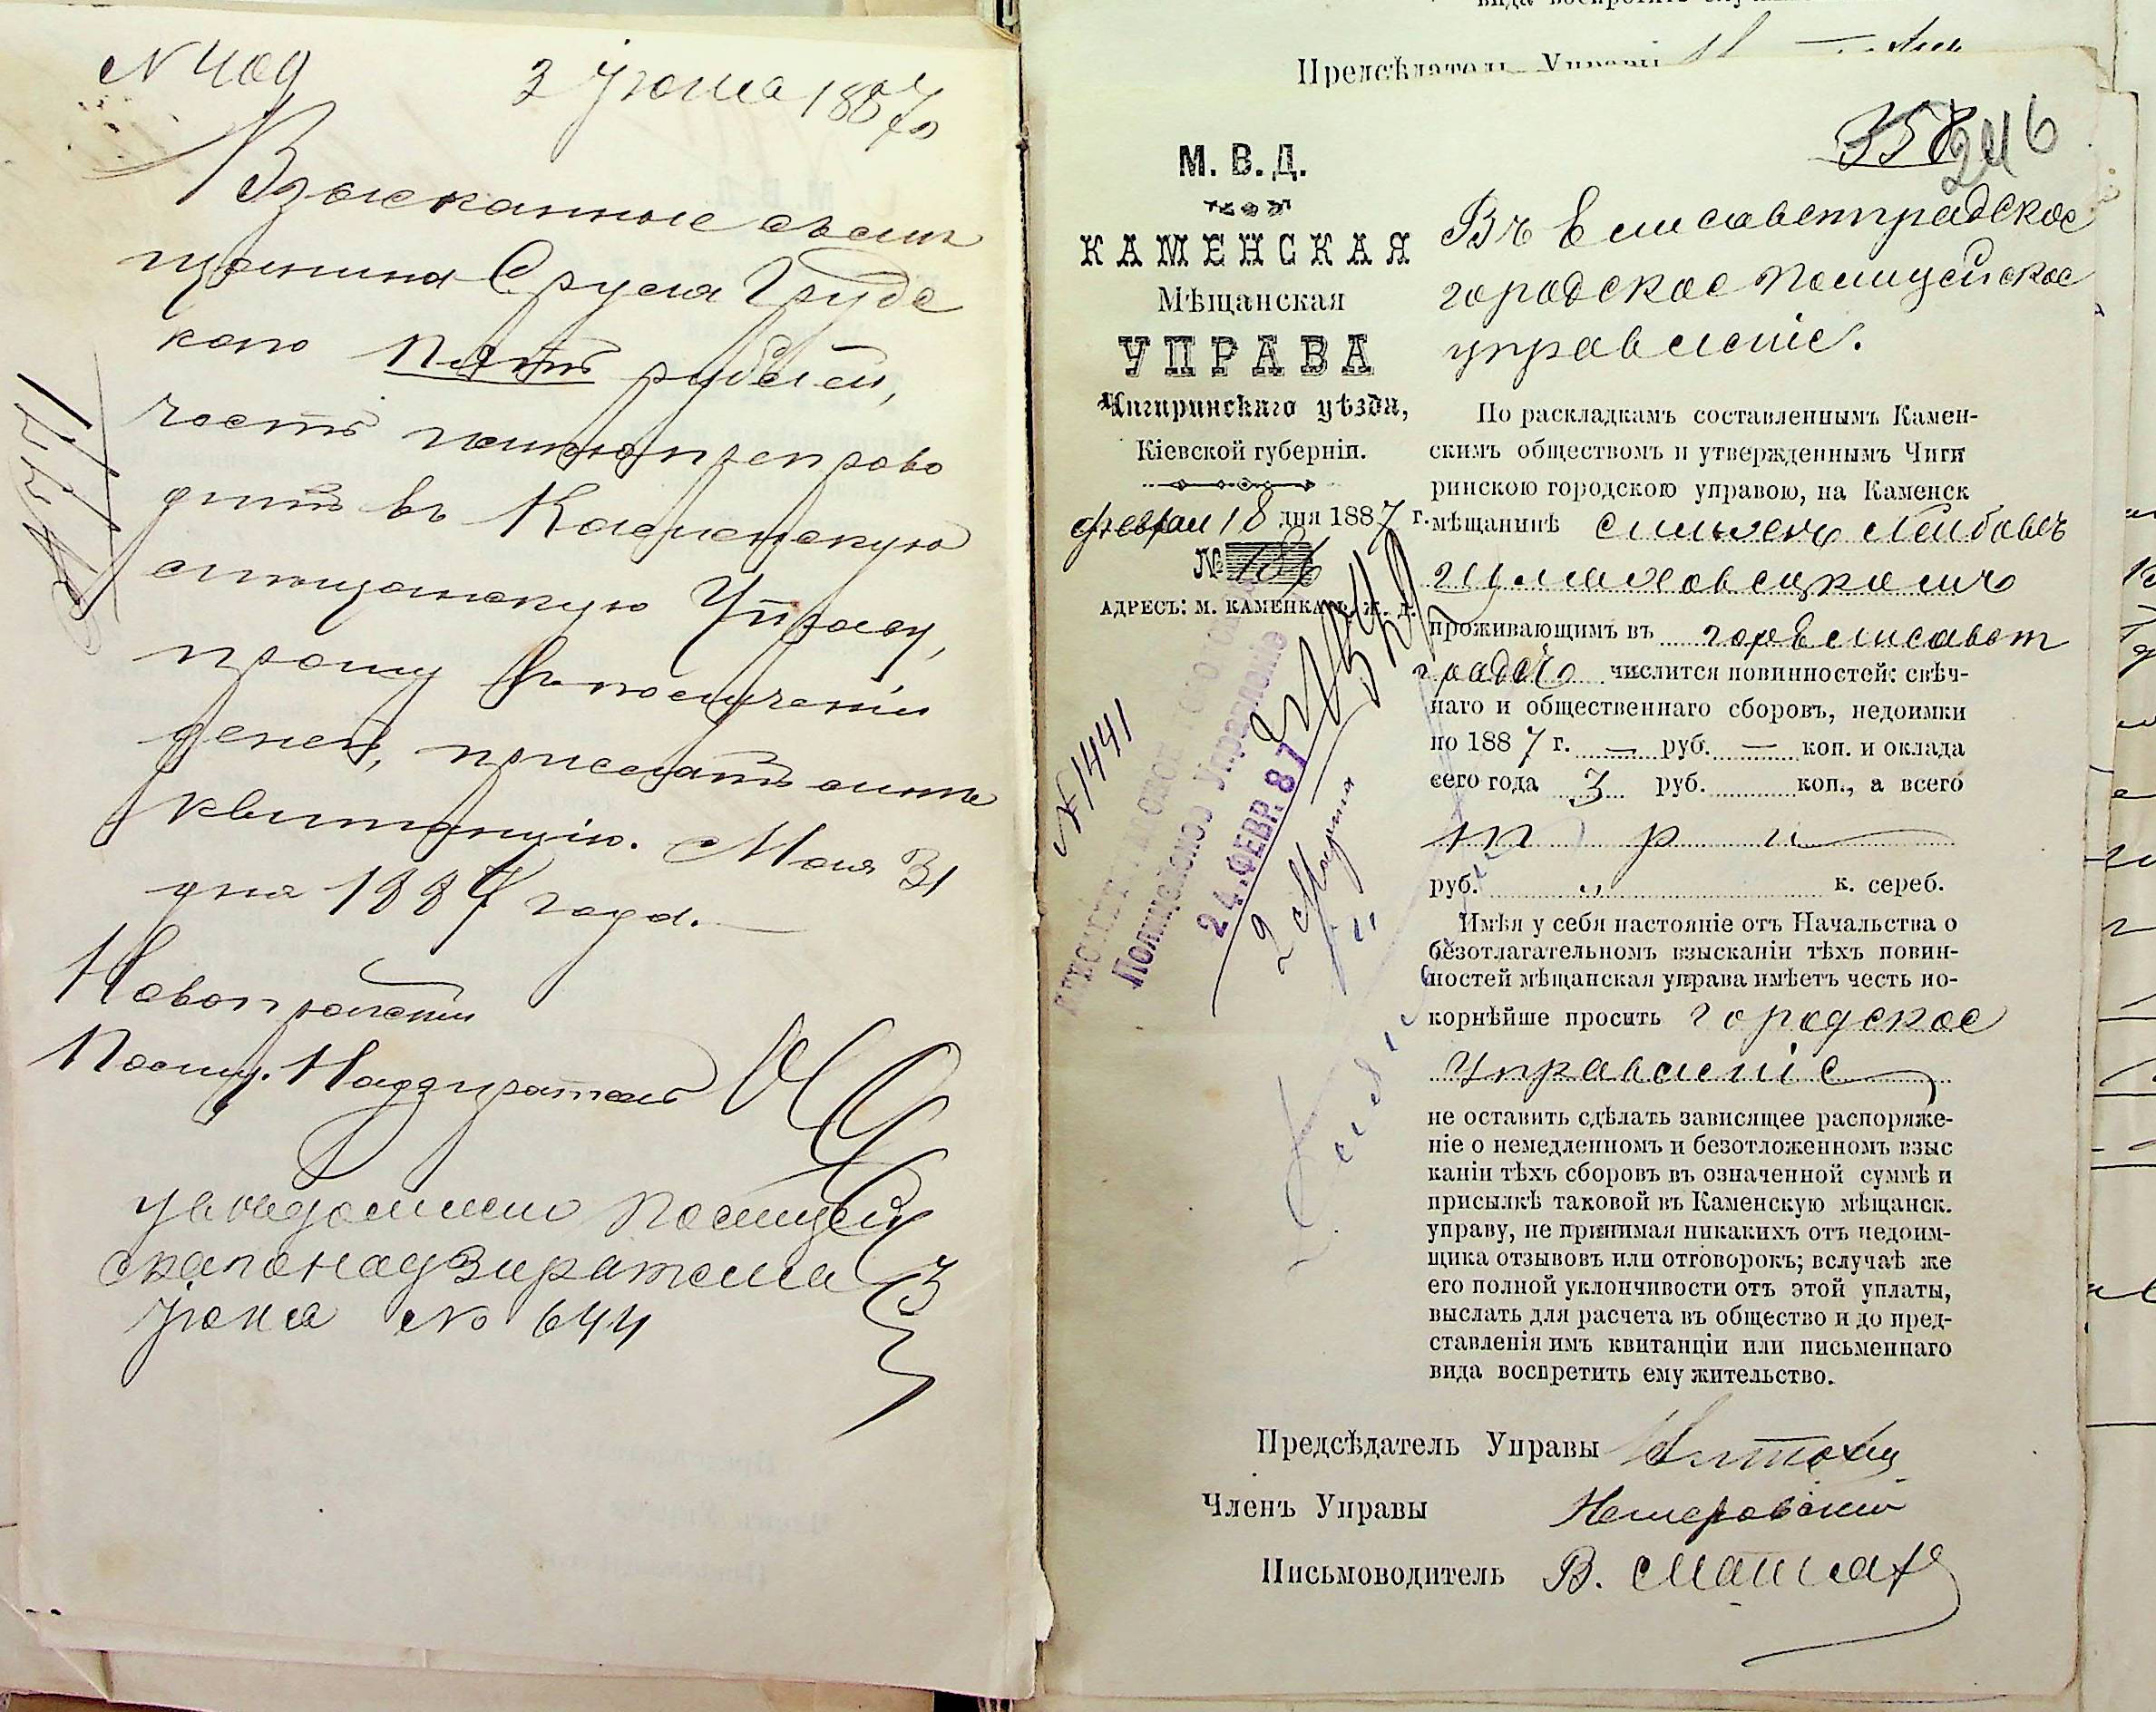 № 409
3 Іюня 1887 г.
Взысканные съ мѣ
щанина Сруля Грудс
каго пять рублей,
честь имѣю препрово
дить въ Каменскую
мѣщанскую Управу,
прошу о полученіи
денегъ, прислать мнѣ
квитанцію. Мая 31
дня 1887 года.
Новопражскій
Полиц. Надзиратель
увѣдомили Полицей
скаго надзирателя 3
Іюня № 644
Предсѣдатель Управы
358
246
М. В. Д.
КАМЕНСКАЯ
Мѣщанская
УПРАВА
Чигиринскаго уѣзда,
Кіевской губерніи.
Февраля 18 дня 1887 г.
№ 186
АДРЕСЪ: М. КАМЕНКА, Ж. Д.
№ 1441
Полицейское Управленіе
24. ФЕВР. 87
2 Марта
Въ Елисаветградское
городское полицейское
управленіе.
По раскладкамъ составленнымъ Камен-
скимъ обществомъ и утвержденнымъ Чиги
ринскою городскою управою, на Каменск
мѣщанинѣ Лейбовѣ
проживающимъ въ гор Елисавет
градѣ числится повинностей: свѣч-
наго и общественнаго сборовъ, недоимки
по 1887 г. — руб. — коп. и оклада
сего года 3 руб. коп., а всего
три
руб. „ к. сереб.
Имѣя у себя настояніе отъ Начальства о
безотлагательномъ взысканіи тѣхъ повин-
ностей мѣщанская управа имѣетъ честь по-
корнѣйше просить городское
Управленіе
не оставить сдѣлать зависящее распоряже-
ніе о немедленномъ и безотложенномъ взыс
каніи тѣхъ сборовъ въ означенной суммѣ и
присылкѣ таковой въ Каменскую мѣщанск.
управу, не принимая никакихъ отъ недоим-
щика отзывовъ или отговорокъ; вслучаѣ же
его полной уклончивости отъ этой уплаты,
выслать для расчета въ общество и до пред-
ставленія имъ квитанціи или письменнаго
вида воспретить ему жительство.
Предсѣдатель Управы
Членъ Управы Немеровскій
Письмоводитель В.